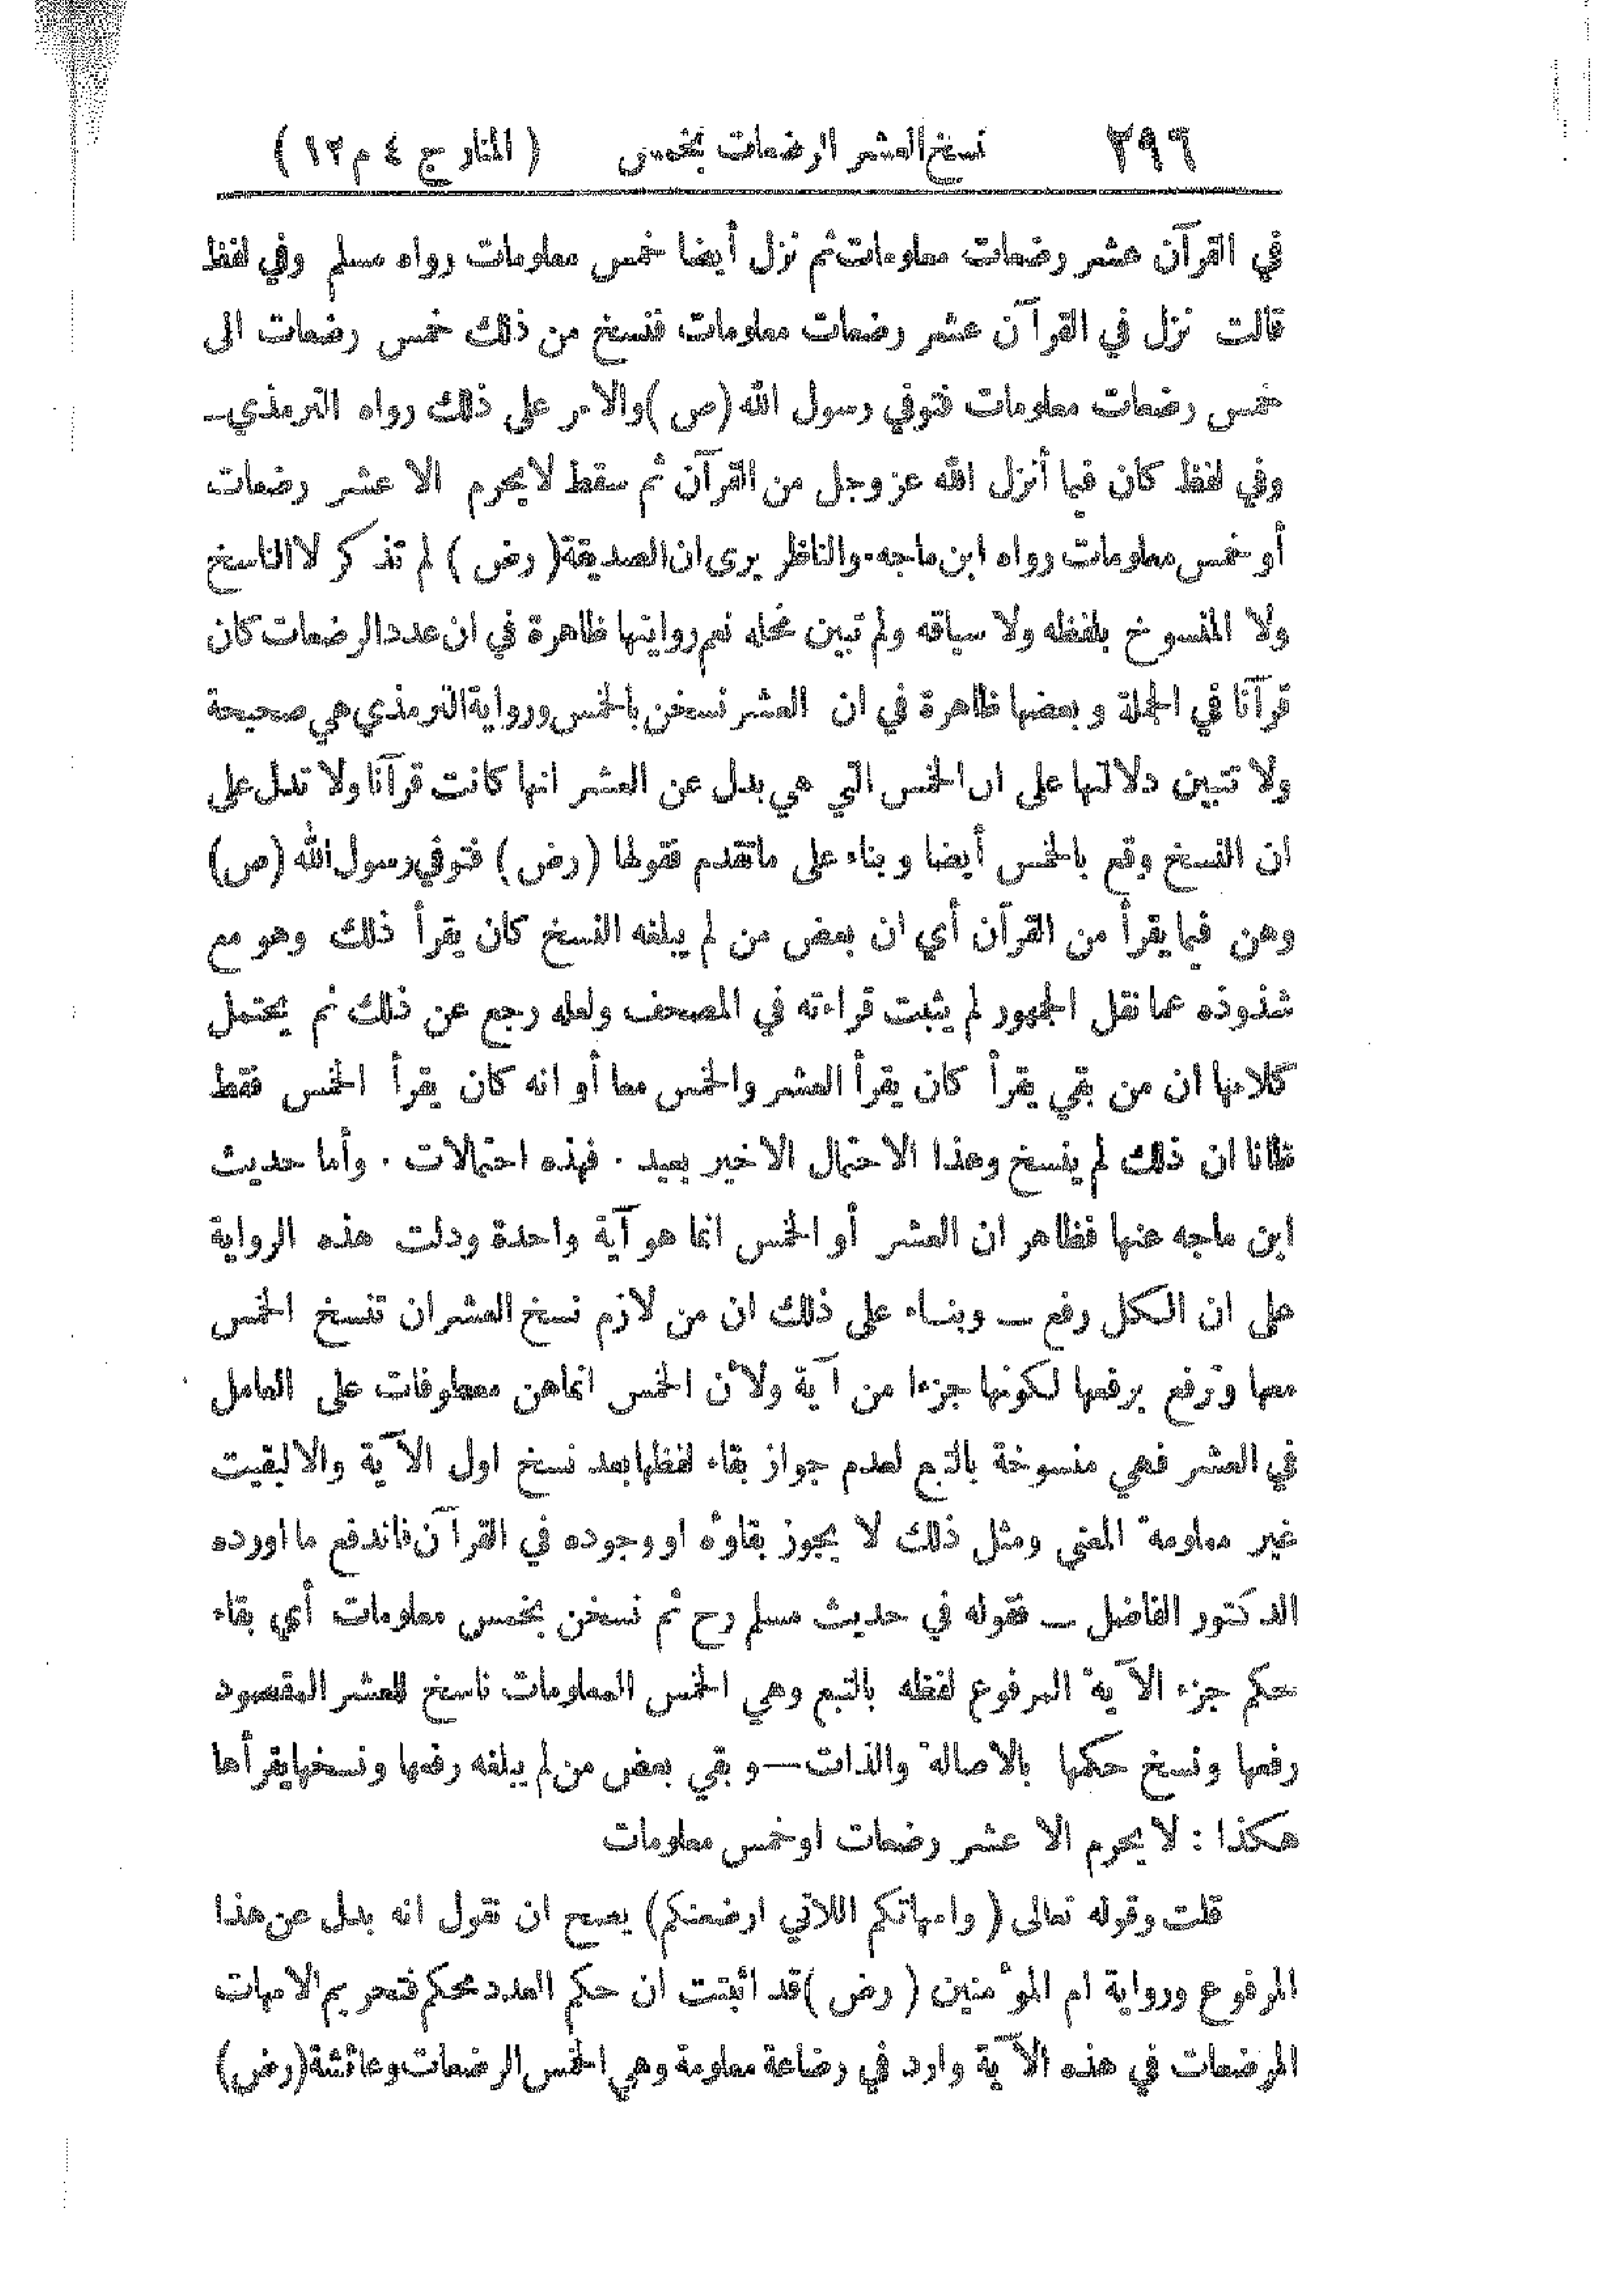 ٢٩٦ نسخ العشر الرضعات بخمس ( المنار ج ٤ م ١٢ )
في القرآن عشر رضعات معلومات ثم نزل أيضا خمس معلومات رواه مسلم وفي لفظ
قالت نزل في القرآن عشر رضعات معلومات فنسخ من ذلك خمس رضعات الى
خمس رضعات معلومات فتوفي رسول الله (ص) والامر على ذلك رواه الترمذي ــ
وفي لفظ كان فيما أنزل الله عز وجل من القرآن ثم سقط لا يحرم الا عشر رضعات
أو خمس معلومات رواه ابن ماجه ٠ والناظر يرى ان الصديقة (رض) لم تذكر لا الناسخ
ولا المنسوخ بلفظه ولا سياقه ولم تبين محله نعم روايتها ظاهرة في ان عدد الرضعات كان
قرآنا في الجملة وبعضها ظاهرة في ان العشر نسخن بالخمس ورواية الترمذي هي صحيحة
ولا تتبين دلالتها على ان الخمس التي هي بدل عن العشر انها كانت قرآنا ولا تدل على
ان النسخ وقع بالخمس أيضا وبناء على ماتقدم فقولها (رض) فتوفي رسول الله (ص)
وهن فيما يقرأ من القرآن أي ان بعض من لم يبلغه النسخ كان يقرأ ذلك وهو مع
شذوذه عما نقل الجمهور لم يثبت قراءته في المصحف ولعله رجع عن ذلك ثم يحتمل
كلامها ان من بقي يقرأ كان يقرأ العشر والخمس معا أو انه كان يقرأ الخمس فقط
ظانا ان ذلك لم ينسخ وهذا الاحتمال الاخير بعيد ٠ فهذه احتمالات ٠ وأما حديث
ابن ماجه عنها فظاهر ان العشر أو الخمس انما هو آية واحدة ودلت هذه الرواية
على ان الكل رفع ــ وبناء على ذلك ان من لازم نسخ العشر ان تنسخ الخمس
معها وترفع برفعها لكونها جزءا من آية ولأن الخمس انما هن معطوفات على العامل
في العشر فهي منسوخة بالتبع لعدم جواز بقاء لفظها بعد نسخ اول الآية والا لبقيت
غير معلومة المعنى ومثل ذلك لا يجوز بقاؤه او وجوده في القرآن فاندفع ما اورده
الدكتور الفاضل ــ فقوله في حديث مسلم رح ثم نسخن بخمس معلومات أي بقاء
حكم جزء الآية المرفوع لفظه بالتبع وهي الخمس المعلومات ناسخ للعشر المقصود
رفعها ونسخ حكمها بالاصالة والذات — وبقي بعض من لم يبلغه رفعها ونسخها يقرأها
هكذا : لا يحرم الا عشر رضعات او خمس معلومات
قلت وقوله تعالى ( وامهاتكم اللاتي ارضعنكم) يصح ان نقول انه بدل عن هذا
المرفوع ورواية ام المؤمنين ( رض ) قد اثبتت ان حكم العدد محكم فتحريم الامهات
المرضعات في هذه الآية وارد في رضاعة معلومة وهي الخمس الرضعات وعائشة (رض)